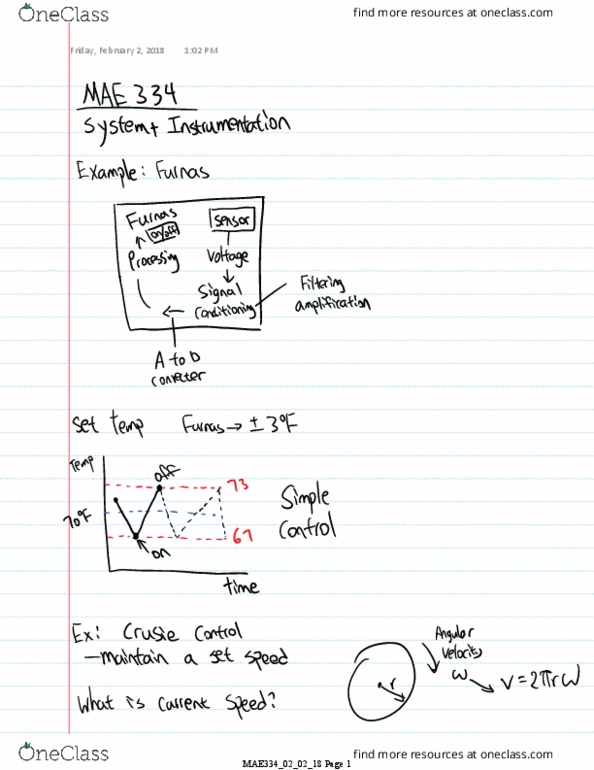 OneClass
find more resources at oneclass.com
Friday, February 2, 2018 1:02 PM
MAE 334
System + Instrumentation
Example: Furnas
Furnas
on/off
sensor
Processing
Voltage
Signal
conditioning
Filtering
amplifiration
A to D
converter
Set temp Furnas → ± 3°F
Temp
off
73
70°F
67
on
time
Simple
Control
Ex: Crusie Control
- maintain a set speed
What is current speed?
Angular
velocity
ω
r
V = 2πrω
OneClass
find more resources at oneclass.com
MAE334_02_02_18 Page 1